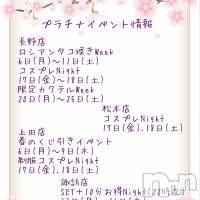 プラチナイベント情報
長野店
ロシアンタコ焼きWeek
6日(月)〜11日(土)
コスプレNight
17日(金)〜18日(土)
限定カクテルWeek
20日(月)〜25日(土)
松本店
コスプレNight
17日(金).18日(土)
上田店
春のくじ引きイベント
6日(月)〜9日(木)
制服コスプレNight
17日(金).18日(土)
諏訪店
SET+10分お得Night(22時迄)